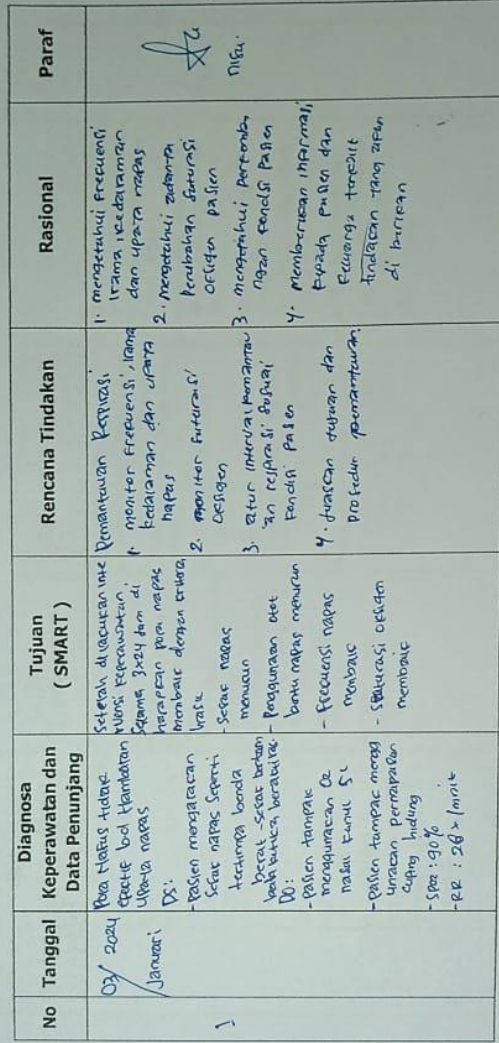 No
Tanggal
Diagnosa
Keperawatan dan
Data Penunjang
Tujuan
( SMART )
Rencana Tindakan
Rasional
Paraf
1
03/ 2024
/Januari
Pola Nafas tidak
efektif bd Hambatan
upaya napas
DS:
- Pasien mengatakan
sesak napas seperti
tertimpa benda
berat - sesak bertam
bah ketika beraktivitas
DO:
- Pasien tampak
menggunakan O2
nasal kanul 5L
- Pasien tampak mengg
unakan pernapasan
cuping hidung
- SpO2 : 90%
- RR : 28 x/menit
Setelah dilakukan inte
rvensi keperawatan
selama 3x24 jam di
harapkan pola napas
membaik dengan kriteria
hasil
- Sesak napas
menurun
- Penggunaan otot
bantu napas menurun
- Frekuensi napas
membaik
- saturasi oksigen
membaik
Pemantauan Respirasi
1. monitor frekuensi, irama
kedalaman dan upaya
napas
2. monitor saturasi
oksigen
3. atur interval pemantau
an respirasi sesuai
kondisi pasien
4. jelaskan tujuan dan
prosedur pemantauan
1. mengetahui frekuensi
irama, kedalaman
dan upaya napas
2. mengetahui adanya
perubahan saturasi
oksigen pasien
3. mengetahui perkemba
ngan kondisi pasien
4. memberikan informasi
kepada pasien dan
keluarga terkait
tindakan yang akan
di berikan